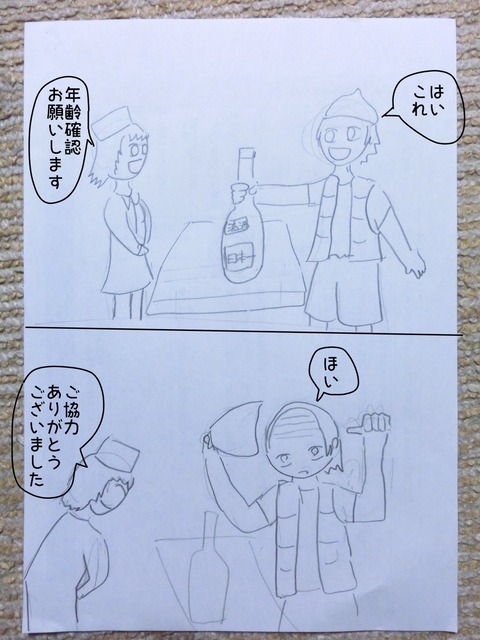 はい
これ
年齢確認
お願いします
酒
日本
ほい
ご協力
ありがとう
ございました